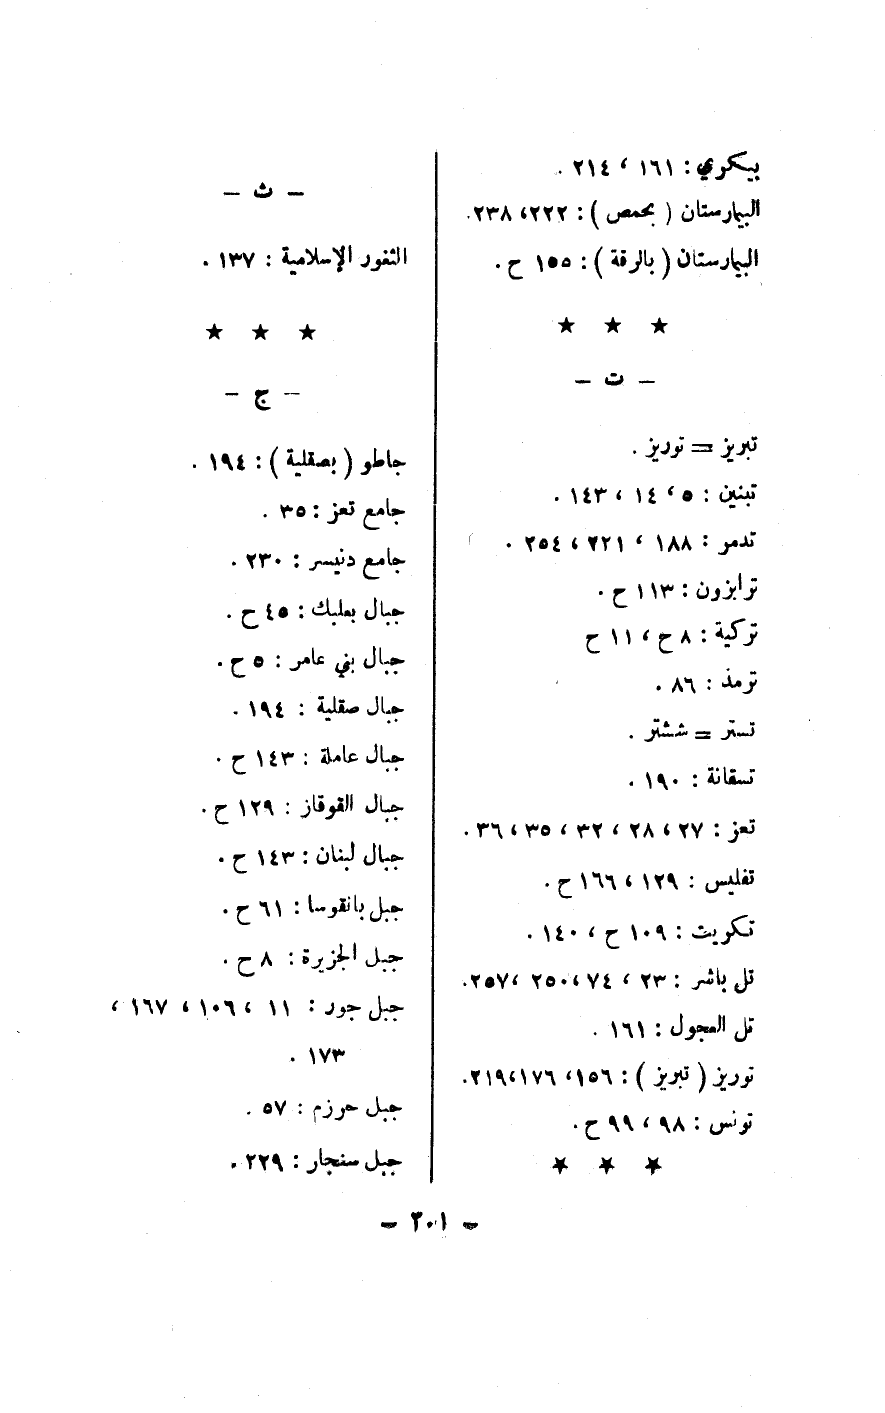 بيكوي : ١٦١ ، ٢١٤ .
البيمارستان ( بحمص ) : ٢٢٢، ٢٣٨.
البيمارستان ( بالرقة ) : ١٥٥ ح .
★ ★ ★
– ت –
تبريز = توريز .
تبنين : ٥ ، ١٤ ، ١٤٣ .
تدمر : ١٨٨ ، ٢٢١ ، ٢٥٤ .
ترابزون : ١١٣ ح .
تركية : ٨ ح ، ١١ ح
ترمذ : ٨٦ .
تستر = ششتر .
تسقانة : ١٩٠ .
تعز : ٢٧ ، ٢٨ ، ٣٢ ، ٣٥ ، ٣٦ .
تفليس : ١٢٩ ، ١٦٦ ح .
تكريت : ١٠٩ ح ، ١٤٠ .
تل باشر : ٢٣ ، ٧٤ ، ٢٥٠ ، ٢٥٧.
تل العجول : ١٦١ .
توريز ( تبريز ) : ١٥٦، ١٧٦، ٢١٩.
تونس : ٩٨ ، ٩٩ ح .
★ ★ ★
– ث –
الثغور الإسلامية : ١٣٧ .
★ ★ ★
– ج –
جاطو ( بصقلية ) : ١٩٤ .
جامع تعز : ٣٥ .
جامع دنيسر : ٢٣٠ .
جبال بعلبك : ٤٥ ح .
جبال بني عامر : ٥ ح .
جبال صقلية : ١٩٤ .
جبال عاملة : ١٤٣ ح .
جبال القوقاز : ١٢٩ ح .
جبال لبنان : ١٤٣ ح .
جبل بانقوسا : ٦١ ح .
جبل الجزيرة : ٨ ح .
جبل جور : ١١ ، ١٠٦ ، ١٦٧ ،
١٧٣ .
جبل حرزم : ٥٧ .
جبل سنجار : ٢٢٩ .
– ٣٠١ –